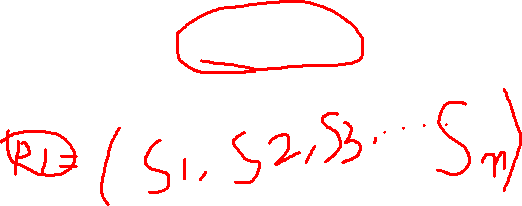 R1 = (S1, S2, S3, ... Sn)